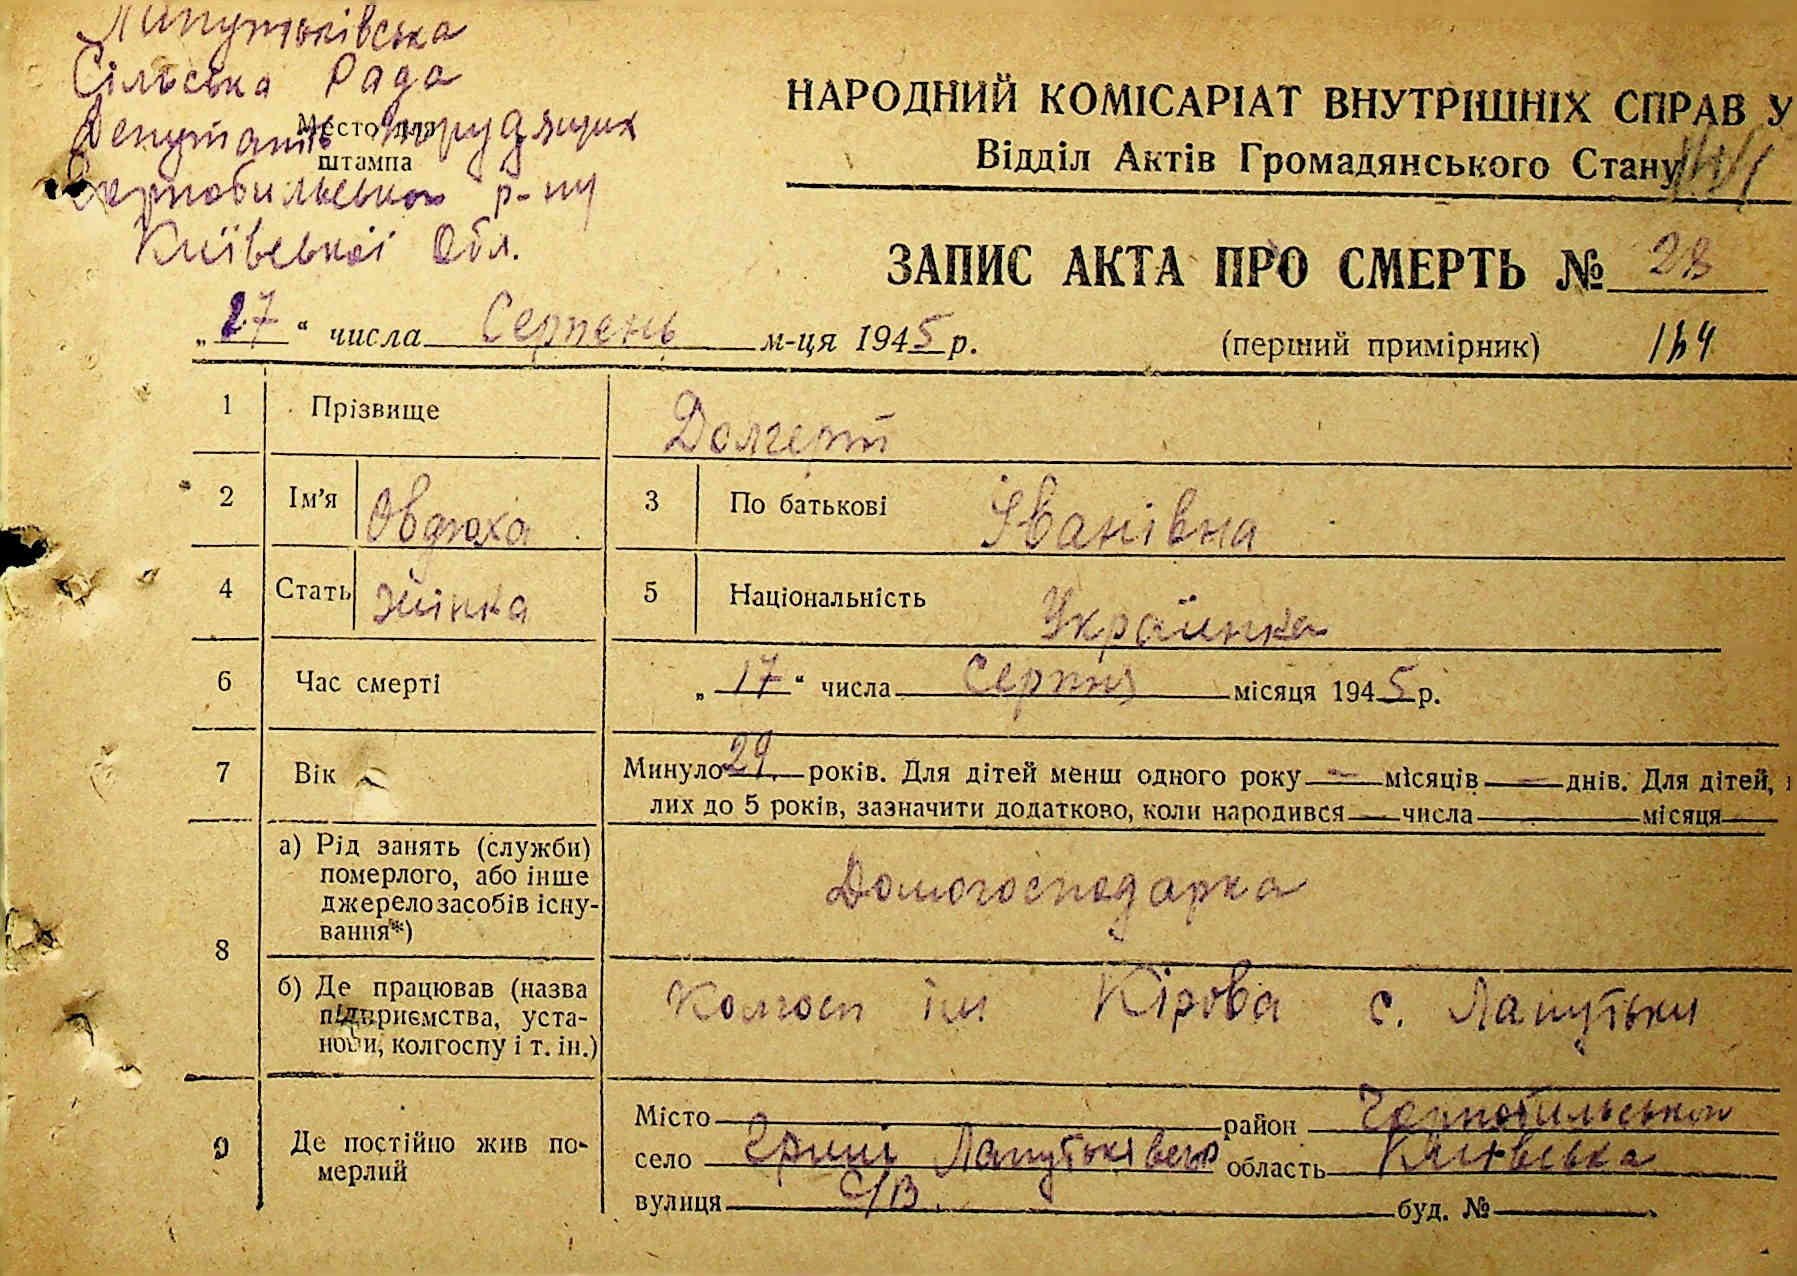 Лапутьківська
Сільська Рада
Депутатів трудящих
Место для
штампа
Чорнобильського р-ну
Київської Обл.
НАРОДНИЙ КОМІСАРІАТ ВНУТРІШНІХ СПРАВ У
Відділ Актів Громадянського Стану
ЗАПИС АКТА ПРО СМЕРТЬ № 28
„27“ числа Серпень м-ця 1945 р.
(перший примірник) 164
1 Прізвище Долгерт
2 Ім'я Овдюха 3 По батькові Іванівна
4 Стать жінка 5 Національність Українка
6 Час смерті „17“ числа Серпня місяця 1945 р.
7 Вік Минуло 29 років. Для дітей менш одного року — місяців — днів. Для дітей,
лих до 5 років, зазначити додатково, коли народився — числа — місяця —
8 а) Рід занять (служби)
померлого, або інше
джерело засобів існу-
вання*)
Домогосподарка
б) Де працював (назва
підприємства, уста-
нови, колгоспу і т. ін.)
Колгосп ім Кірова с. Лапутьки
9 Де постійно жив по-
мерлий
Місто район Чорнобильського
село Грині Лапутьківсько область Київська
вулиця С/В. буд. №